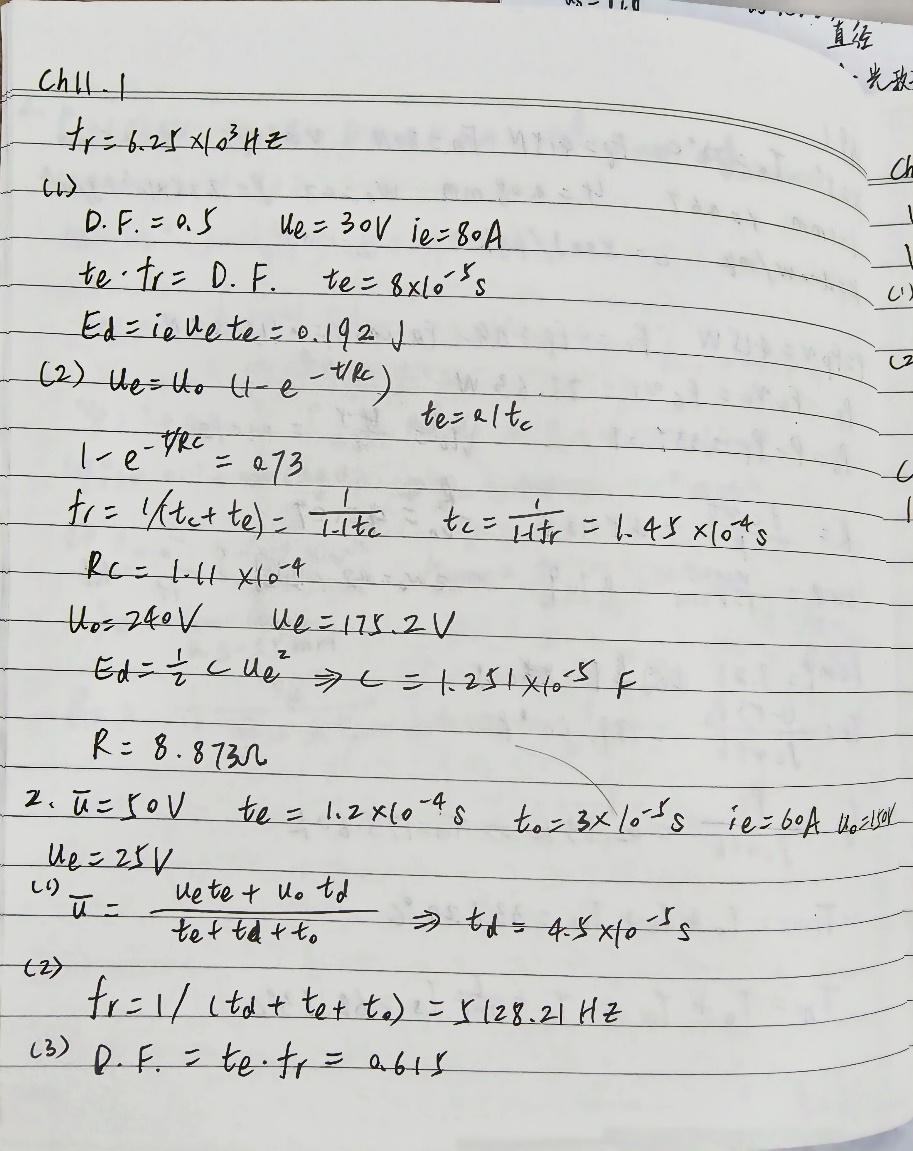 直径
Ch11.1
fr = 6.25 × 10³ HZ
(1)
D.F. = 0.5 Ue = 30V ie = 80A
te · fr = D.F. te = 8×10⁻⁵ s
Ed = ie Ue te = 0.192 J
(2) Ue = Uo (1 - e^-t/RC)
te = 0.1tc
1 - e^-t/RC = 0.73
fr = 1/(tc + te) = 1/1.1tc tc = 1/1.1fr = 1.45 ×10⁻⁴ s
RC = 1.11 ×10⁻⁴
Uo = 240V Ue = 175.2 V
Ed = 1/2 C Ue² ⇒ C = 1.251×10⁻⁵ F
R = 8.873Ω
2. ū = 50V te = 1.2×10⁻⁴ s to = 3×10⁻⁵ s ie = 60A Uo=150V
Ue = 25V
(1) ū = (Uete + Uo td)/(te + td + to) ⇒ td = 4.5×10⁻⁵ s
(2)
fr = 1/(td + te + to) = 5128.21 HZ
(3) D.F. = te · fr = 0.615